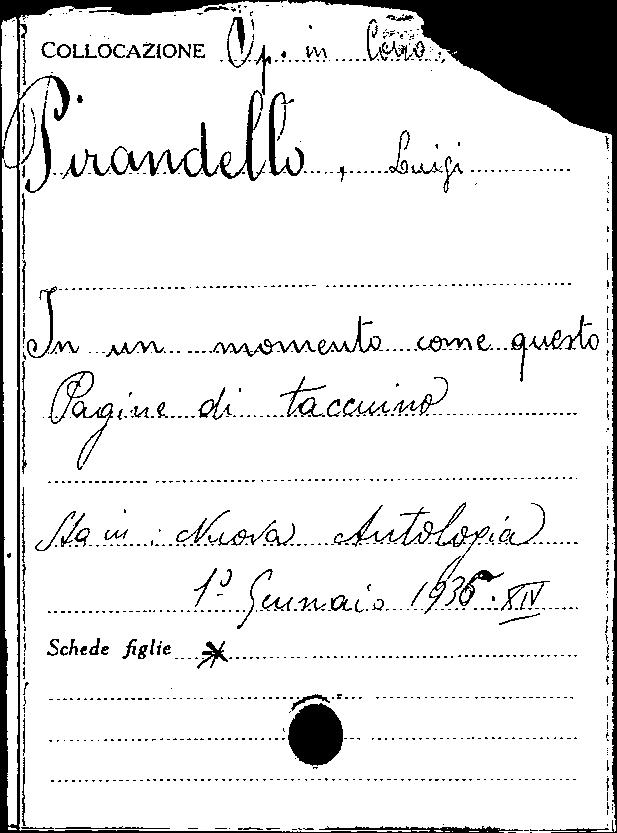 COLLOCAZIONE Op. in Corso.
Pirandello, Luigi
In un momento come questo
Pagine di taccuino
Sta in: Nuova Antologia
1º Gennaio 1936. XIV
Schede figlie *